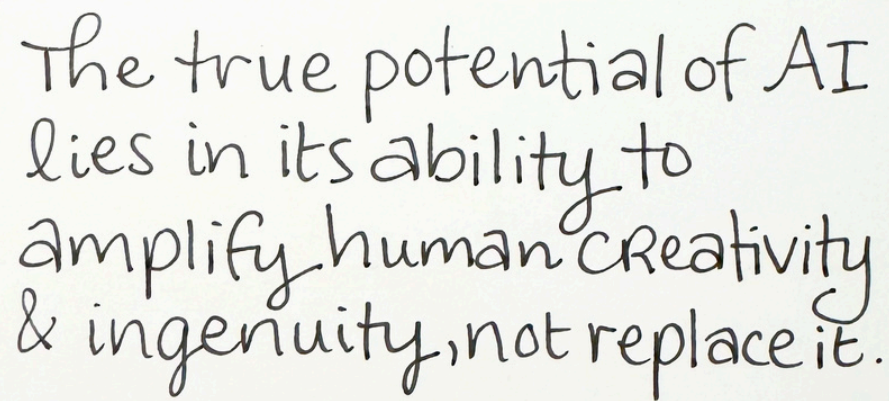 The true potential of AI
lies in its ability to
amplify human creativity
& ingenuity, not replace it.